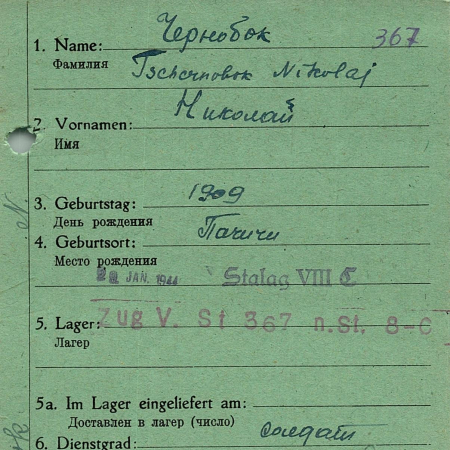 Чернобок 367
1. Name:
Фамилия
Tschernobok Nikolaj
Николай
2. Vornamen:
Имя
3. Geburtstag: 1909
День рождения
Пачичи
4. Geburtsort:
Место рождения
JAN. 1944 Stalag VIII C
5. Lager: Zug V. St 367 n.St. 8-C
Лагерь
5a. Im Lager eingeliefert am:
Доставлен в лагер (число)
солдат
6. Dienstgrad: